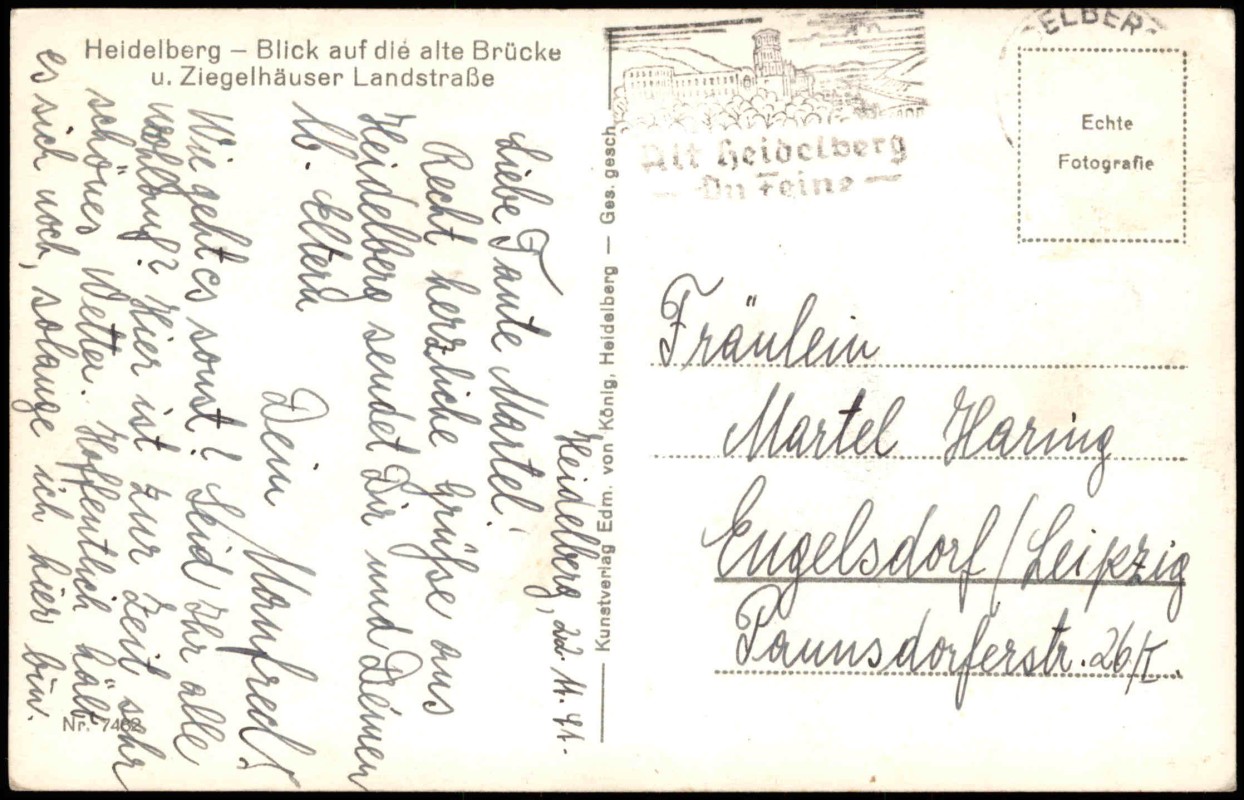 Heidelberg – Blick auf die alte Brücke
u. Ziegelhäuser Landstraße
Heidelberg, 22. 11. 41.
Liebe Tante Martel!
Recht herzliche Grüße aus
Heidelberg sendet Dir und Deinen
lb. Eltern
Dein Manfred!
Wie geht es sonst? Seid Ihr alle
wohlauf? Hier ist zur Zeit sehr
schönes Wetter. Hoffentlich hält
es sich noch, solange ich hier bin.
Nr. 7462
Kunstverlag Edm. von König, Heidelberg — Ges. gesch.
Alt Heidelberg
— Du Feine —
ELBER
Echte
Fotografie
Fräulein
Martel Haring
Engelsdorf/Leipzig
Paunsdorferstr. 26/I.